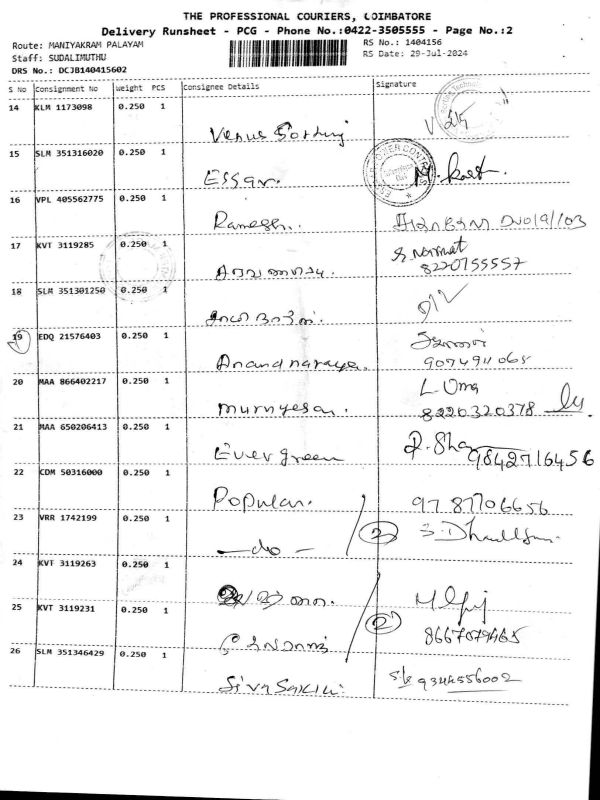 THE PROFESSIONAL COURIERS, COIMBATORE
Delivery Runsheet - PCG - Phone No.:0422-3505555 - Page No.:2
Route: MANIYAKRAM PALAYAM
RS No.: 1404156
Staff: SUDALIMUTHU
RS Date: 29-Jul-2024
DRS No.: DCJB140415602
S No Consignment No Weight PCS Consignee Details Signature
14 KLM 1173098 0.250 1
Venus
15 SLM 351316020 0.250 1
Essar.
16 VPL 405562775 0.250 1
Ramesh..
17 KVT 3119285 0.250 1
8220755557
18 SLM 351301250 0.250 1
19 EDQ 21576403 0.250 1
Anand naraya. 9074911065
20 MAA 866402217 0.250 1
L Uma
murugesan. 8220320378
21 MAA 650206413 0.250 1
Evergreen 9842716456
22 CDM 50316000 0.250 1
Popular. 9787706656
23 VRR 1742199 0.250 1
- do - 2
24 KVT 3119263 0.250 1
25 KVT 3119231 0.250 1
2
26 SLM 351346429 0.250 1
Siva Sakthi. 9344556002